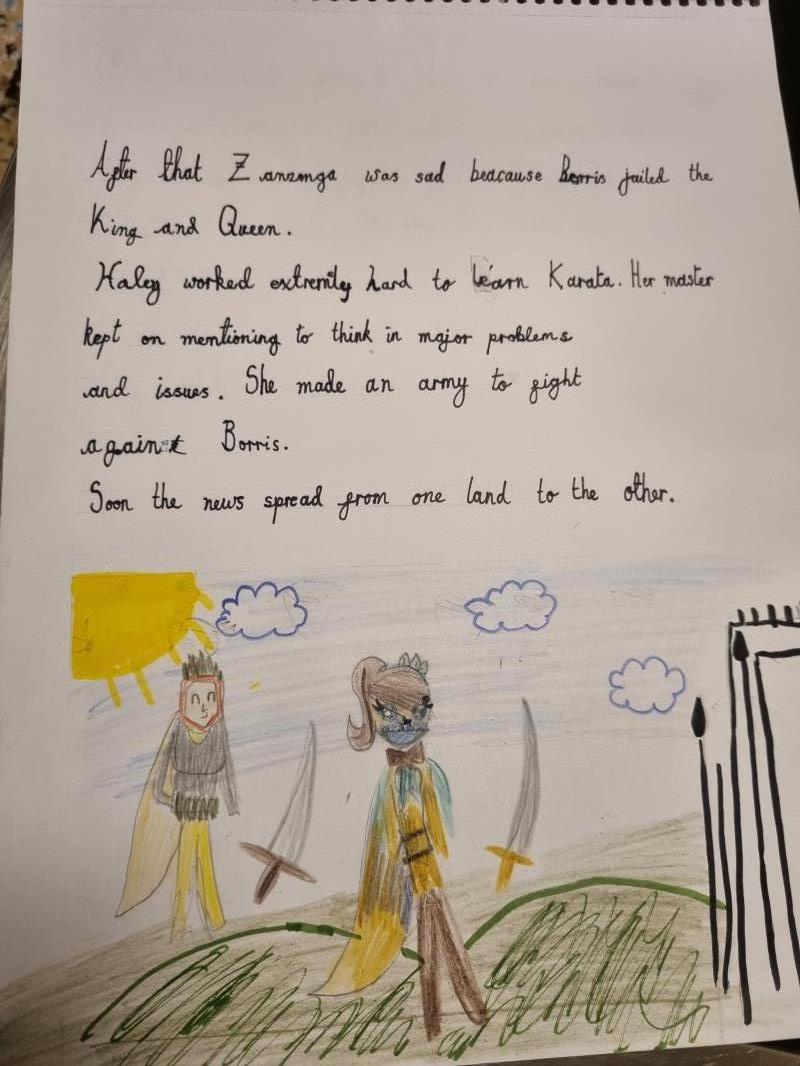 After that Zanzonga was sad beacause Borris jailed the
King and Queen.
Haley worked extremly hard to learn Karata. Her master
kept on mentioning to think in major problems
and issues. She made an army to fight
against Borris.
Soon the news spread from one land to the other.